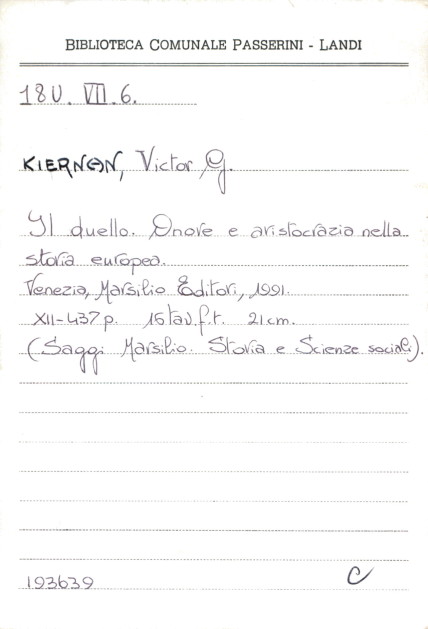 BIBLIOTECA COMUNALE PASSERINI - LANDI
18U. VII.6.
KIERNAN, Victor G.
Il duello. Onore e aristocrazia nella
storia europea.
Venezia, Marsilio Editori, 1991.
XII-437 p. 16 tav. f.t. 21 cm.
(Saggi Marsilio. Storia e Scienze sociali).
193639 C